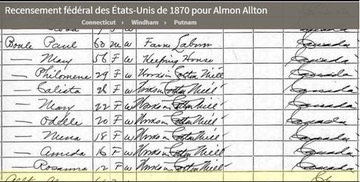 Recensement fédéral des États-Unis de 1870 pour Almon Allton
Connecticut > Windham > Putnam
Boule Paul 60 m w Farm Labor Canada
— Mary 56 F w Keeping House Canada
— Philomene 29 F w Works in Cotton Mill Canada
— Calista 26 F w Works in Cotton Mill Canada
— Mary 22 F w Works in Cotton Mill Canada
— Odella 20 F w Works in Cotton Mill Canada
— 18 F w Works in Cotton Mill Canada
— 16 F w Works in Cotton Mill Canada
— Rosanna 12 F w Works in Cotton Mill Canada